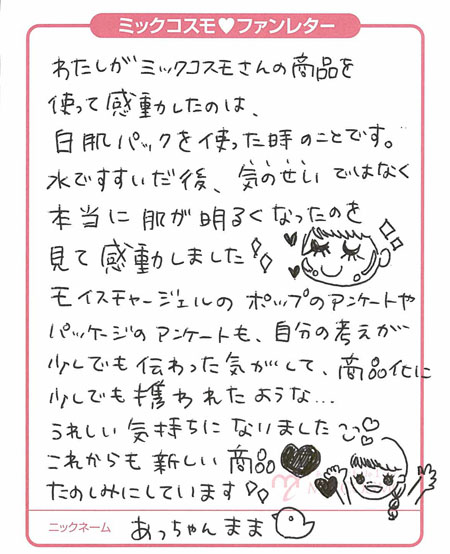 ミックコスモ♥ファンレター
わたしがミックコスモさんの商品を
使って感動したのは、
白肌パックを使った時のことです。
水ですすいだ後、気のせいではなく
本当に肌が明るくなったのを
見て感動しました
モイスチャージェルのポップのアンケートや
パッケージのアンケートも、自分の考えが
少しでも伝わった気がして、商品化に
少しでも携われたような…
うれしい気持ちになりました
これからも新しい商品
たのしみにしています
ニックネーム あっちゃんまま